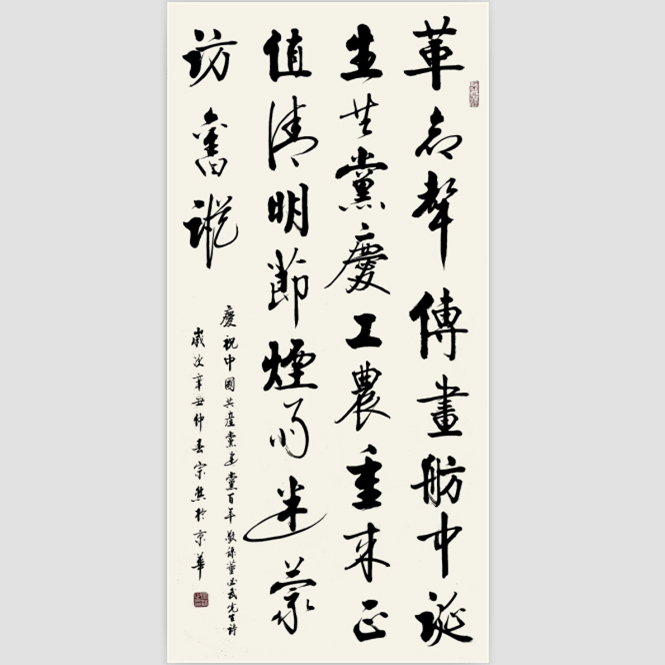 革命聲傳畫舫中誕
生共黨慶工農重來正
值清明節煙雨迷蒙
訪舊蹤
慶祝中國共產黨建黨百年敬錄董必武先生詩
歲次辛丑仲春宗於京華